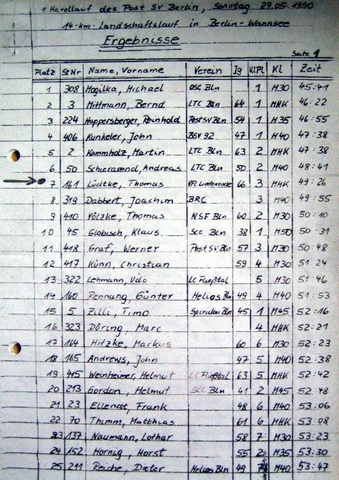 1. Havellauf des Post SV Berlin, Sonntag 27.05.1990
14-km-Landschaftslauf in Berlin-Wannsee
Ergebnisse
Seite 1
Platz StNr Name, Vorname Verein Jg KlPl Kl Zeit
1 308 Mogilka, Michael OSC Bln 1 M30 45:41
2 3 Mittmann, Bernd LTC Bln 64 1 MHK 46:22
3 224 Hoppersberger, Reinhold Post SV Bln 54 1 M35 46:55
4 406 Kunkeler, John BSV 92 47 1 M40 47:38
5 2 Kammholz, Martin LTC Bln 63 2 MHK 47:38
6 50 Andreas LTC Bln 50 2 M40 48:41
7 161 Lüdtke, Thomas 66 3 MHK 49:26
8 319 Dabbert, Joachim BRC 3 M40 49:55
9 410 Pölzke, Thomas NSF Bln 60 2 M30 50:10
10 45 Globisch, Klaus SCC Bln 38 1 M50 50:31
11 418 Graf, Werner Post SV Bln 57 3 M30 50:48
12 417 Künn, Christian 59 4 M30 51:24
13 322 Lehmann, Udo 5 M30 51:46
14 160 Pennung, Günter Helios Bln 49 4 M40 51:53
15 5 Zilli, Timo Spiridon Bln 45 1 M45 52:16
16 323 Döring, Marc 4 MHK 52:21
17 164 Hitzke, Markus 60 6 M30 52:23
18 165 Andrews, John 47 5 M40 52:38
19 415 Weinheimer, Helmut 63 5 MHK 52:42
20 213 Gordon, Helmut SCC Bln 41 2 M45 52:48
21 23 Ellenett, Frank 48 6 M40 53:06
22 70 Thimm, Matthias 61 6 MHK 53:08
23 137 Naumann, Lothar 58 7 M30 53:23
24 152 Hornig, Horst 55 2 M35 53:30
25 211 Reiche, Dieter Helios Bln 49 7 M40 53:47